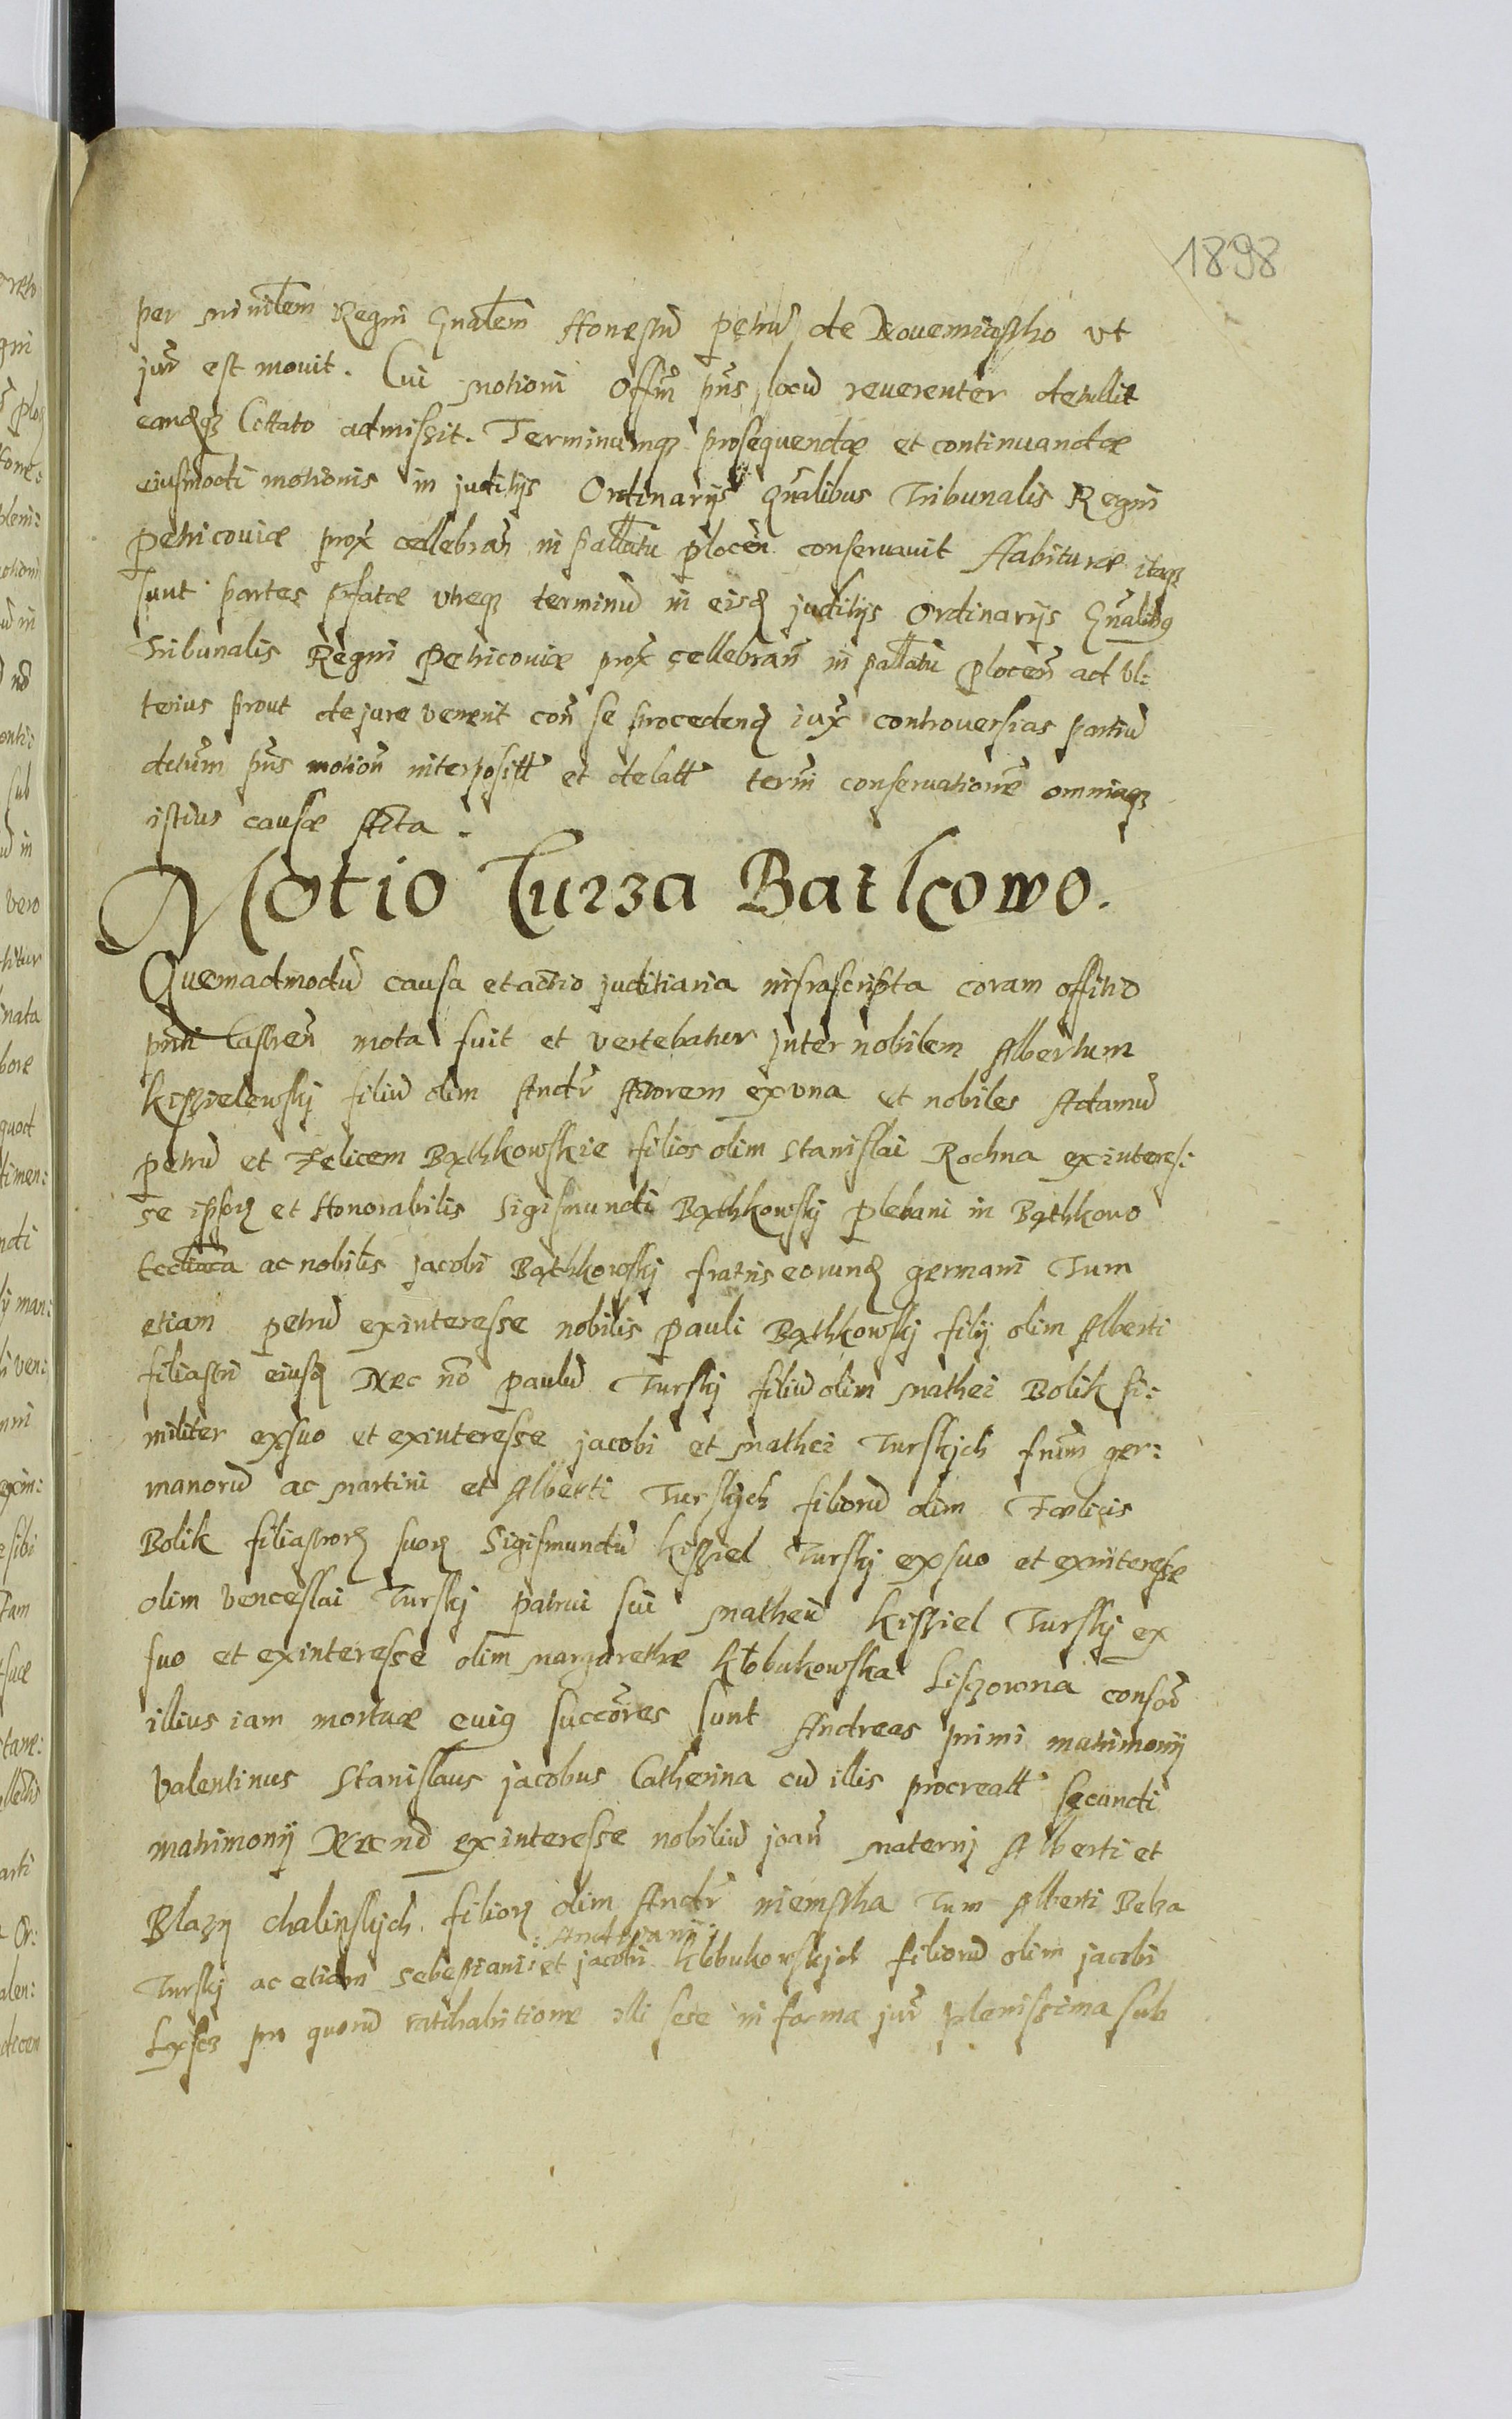 1898
per ministlem Regni Gnalem Honestu petru de Nouemiastho ut
jur est mouit. Cui motioni Offm pns locu reuerenter detullit
eandqz Cittato admissit. Terminumqz prosequendæ et continuandæ
eiusmodi motionis in juditijs Ordinarijs Gnalibus Tribunalis Regni
petricouiæ prox cellebran in pallatu plocen conseruauit Habituræ itaqz
sunt partes pfatæ vtreqz terminu in eisd juditijs Ordinarijs Gnalibg
Tribunalis Regni Petricouiæ prox cellebran in pallatu plocen ad vl:
terius prout de jure venerit con se procedend iux controuersias partiu
detum pns motion interposit et delatt termi conseruatione omniaqz
istius causæ Acta.
Motio Turza Batkowo.
Quemadmodu causa et actio juditiaria infrascripta coram offitio
pnti Castren mota fuit et vertebatur Inter nobilem Albertum
Kissielewskj filiu olim Andr Actorem ex vna et nobiles Adamu
petru et Felicem Bąthkowskie filios olim Stanislai Rochna ex interes:
se ipsorz et Honorabilis Sigismundi Bąthkowskj plebani in Bąthkowo
ac nobilis Jacobi Bąthkowskj fratris eorund germani Tum
etiam petru ex interesse nobilis pauli Bąthkowskj filij olim Alberti
filiastri eiusd Nec no paulu Turskj filiu olim mathei Bolik si:
militer ex suo et ex interesse jacobi et mathei Turskich frum ger:
manoru ac martini et Alberti Turskich filioru olim Fœlicis
Bolik filiastrorz suorz Sigismundu Kissiel Turskj ex suo et ex interesse
olim venceslai Turskj patrui sui matheu Kissiel Turskj ex
suo et ex interesse olim margarethæ Kłobukowska Liszowna consor
illius iam mortuæ cuig succores sunt Andreas primi matrimonij
Valentinus Stanislaus jacobus Catherina cu illis procreatt secundi
matrimonij Nec no ex interesse nobiliu joan maternj Alberti et
Blazy chalinskich filiorz olim Andr niemstha Tum Alberti Belza
: Andrianij :
Turskj ac etiam sebestiani : et jacobi Kłobukowskich filioru olim jacobi
pro quoru ratihabitione illi sese in forma jur plenissima sub